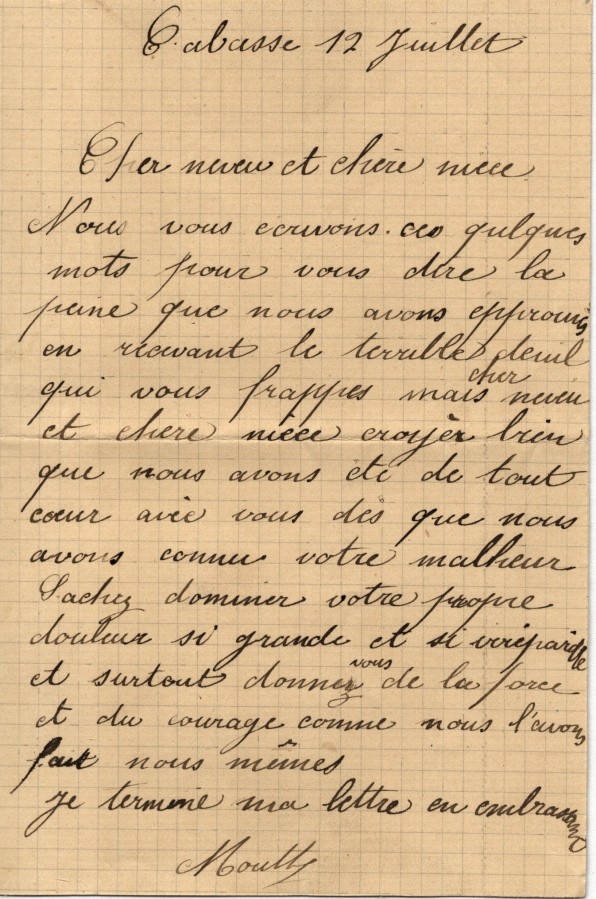 Cabasse 12 Juillet
Cher neveu et chère niece
Nous vous ecrivons ces quelques
mots pour vous dire la
peine que nous avons epprouvés
en recevant le terrible deuil
qui vous frappes mais cher neveu
et chere nièce croyèr bien
que nous avons été de tout
cœur avec vous dés que nous
avons connu votre malheur
Sachez dominer votre propre
douleur si grande et si irréparable
et surtout donnez vous de la force
et du courage comme nous l'avons
fait nous mêmes
Je termine ma lettre en embrassant